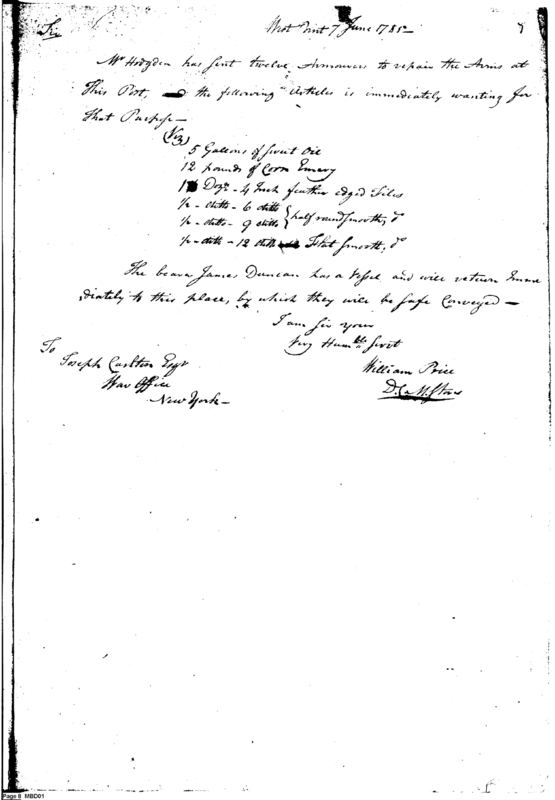 Sir West Point 7 June 1785 8
Mr Hodgdon has sent twelve Armourers to repair the Arms at
this Post, the following Articles is immediately wanting for
that Purpose—
(Viz)
5 Gallons of Sweet Oil
12 pounds of Corn Emery
1 Dozn - 4 Inch feather edged Files
½ - ditto - 6 ditto
½ - ditto - 9 ditto } half round smooth, do
½ - ditto - 12 ditto Flat smooth, do
The bearer James Duncan has a Vessel and will return Imme
diately to this place, by which they will be safe Conveyed—
I am Sir your
Very Humble Servt
William Price
D. C. M. Stores
To
Joseph Carleton Esqr
War Office
New York—
Page 8 MBD01